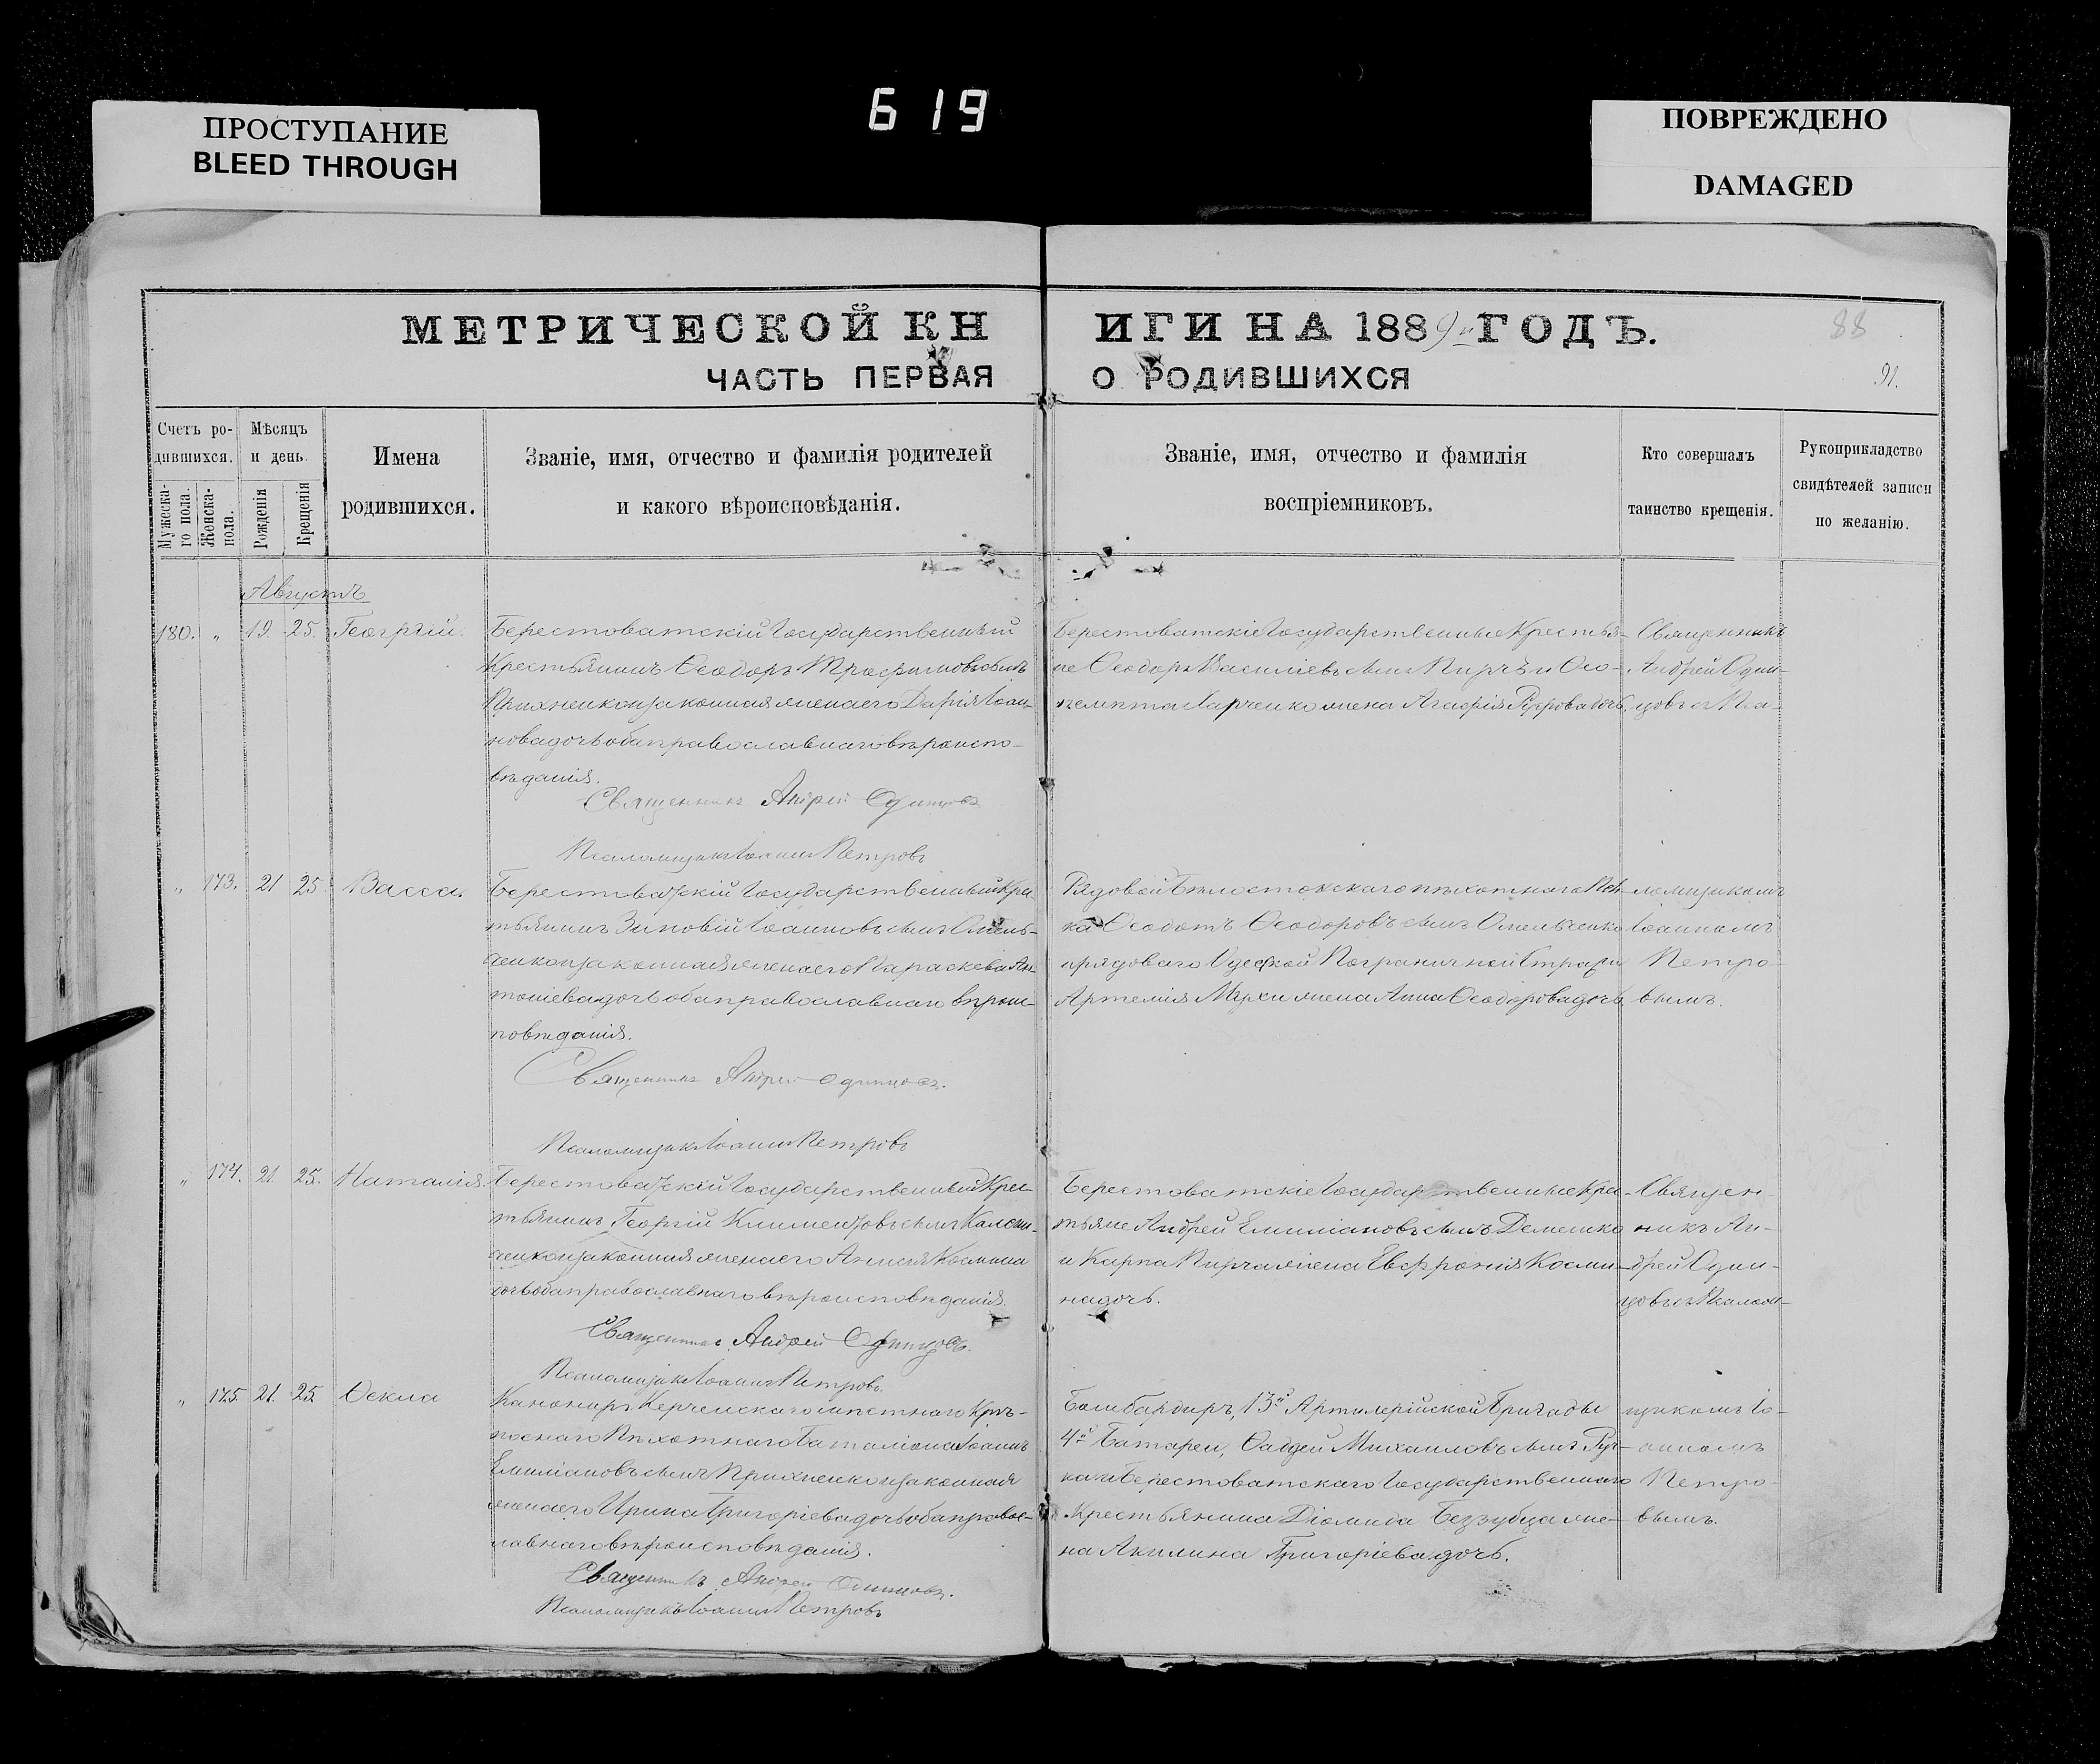 619
ПРОСТУПАНИЕ
BLEED THROUGH
ПОВРЕЖДЕНО
DAMAGED
МЕТРИЧЕСКОЙ КНИГИ НА 1889й ГОДЪ.
88
ЧАСТЬ ПЕРВАЯ О РОДИВШИХСЯ
91.
Счетъ ро-
дившихся.
Мужеска-
го пола.
Женска-
пола.
Мѣсяцъ
и день.
Рожденія
Крещенія
Имена
родившихся.
Званіе, имя, отчество и фамилія родителей
и какого вѣроисповѣданія.
Званіе, имя, отчество и фамилія
воспріемниковъ.
Кто совершалъ
таинство крещенія.
Рукоприкладство
свидѣтелей записи
по желанію.
Августъ
180. „ 19. 25. Георгій.
Берестоватскій Государственный
Крестьянинъ Ѳеодоръ Трофимовъ сынъ
Прихненко и законная жена его Дарія Іоан-
нова дочь оба православнаго вѣроиспо-
вѣданія.
Священникъ Андрей Одинцовъ
Псаломщикъ Іоаннъ Петровъ
Берестоватскіе Государственные Крестья-
не Ѳеодоръ Василіевъ сынъ и Ѳео-
пемпта Харченко жена Агафія дочь.
Священникъ
Андрей Один-
цовъ съ Пса-
„ 173. 21 25 Васса.
Берестоватскій Государственный Кре-
тьянинъ Зиновій Іоанновъ сынъ Омель-
ченко и законная жена его Параскева Ан-
тоніева дочь оба православнаго вѣроис-
повѣданія.
Священникъ Андрей Одинцовъ.
Псаломщикъ Іоаннъ Петровъ
Рядовой Бѣлостокскаго пѣхотнаго Пол-
ка Ѳеодотъ Ѳеодоровъ сынъ Омельченко
и рядоваго Одесской Пограничной Стражи
Артемія жена Анна Ѳеодорова дочь
ломщикомъ
Іоанномъ
Петро-
вымъ.
„ 174. 21 25. Наталія.
Берестоватскій Государственный Крес-
тьянинъ Георгій Климентовъ сынъ
и законная жена его Анисія Космина
дочь оба православнаго вѣроисповѣданія.
Священникъ Андрей Одинцовъ.
Псаломщикъ Іоаннъ Петровъ.
Берестоватскіе Государственные Кре-
тьяне Андрей Емиліановъ сынъ Деменко
и Карпа жена Евфронія Косми-
на дочь.
Священ-
никъ Ан-
дрей Один-
цовъ съ Псалом-
„ 175. 21. 25. Ѳекла
Канониръ Керченскаго мѣстнаго Крѣ-
постнаго Пѣхотнаго Баталіона Іоаннъ
Емиліановъ сынъ Прихненко и законная
жена его Ирина Григоріева дочь оба правос-
лавнаго вѣроисповѣданія.
Священникъ Андрей Одинцовъ.
Псаломщикъ Іоаннъ Петровъ
Бомбардиръ, 13й Артилерійской Бригады
4й Батареи, Ѳаддей Михаиловъ сынъ
и Берестоватскаго Государственнаго
Крестьянина Діомида Беззубца же-
на Акилина Григоріева дочь.
щикомъ Іо-
анномъ
Петро-
вымъ.